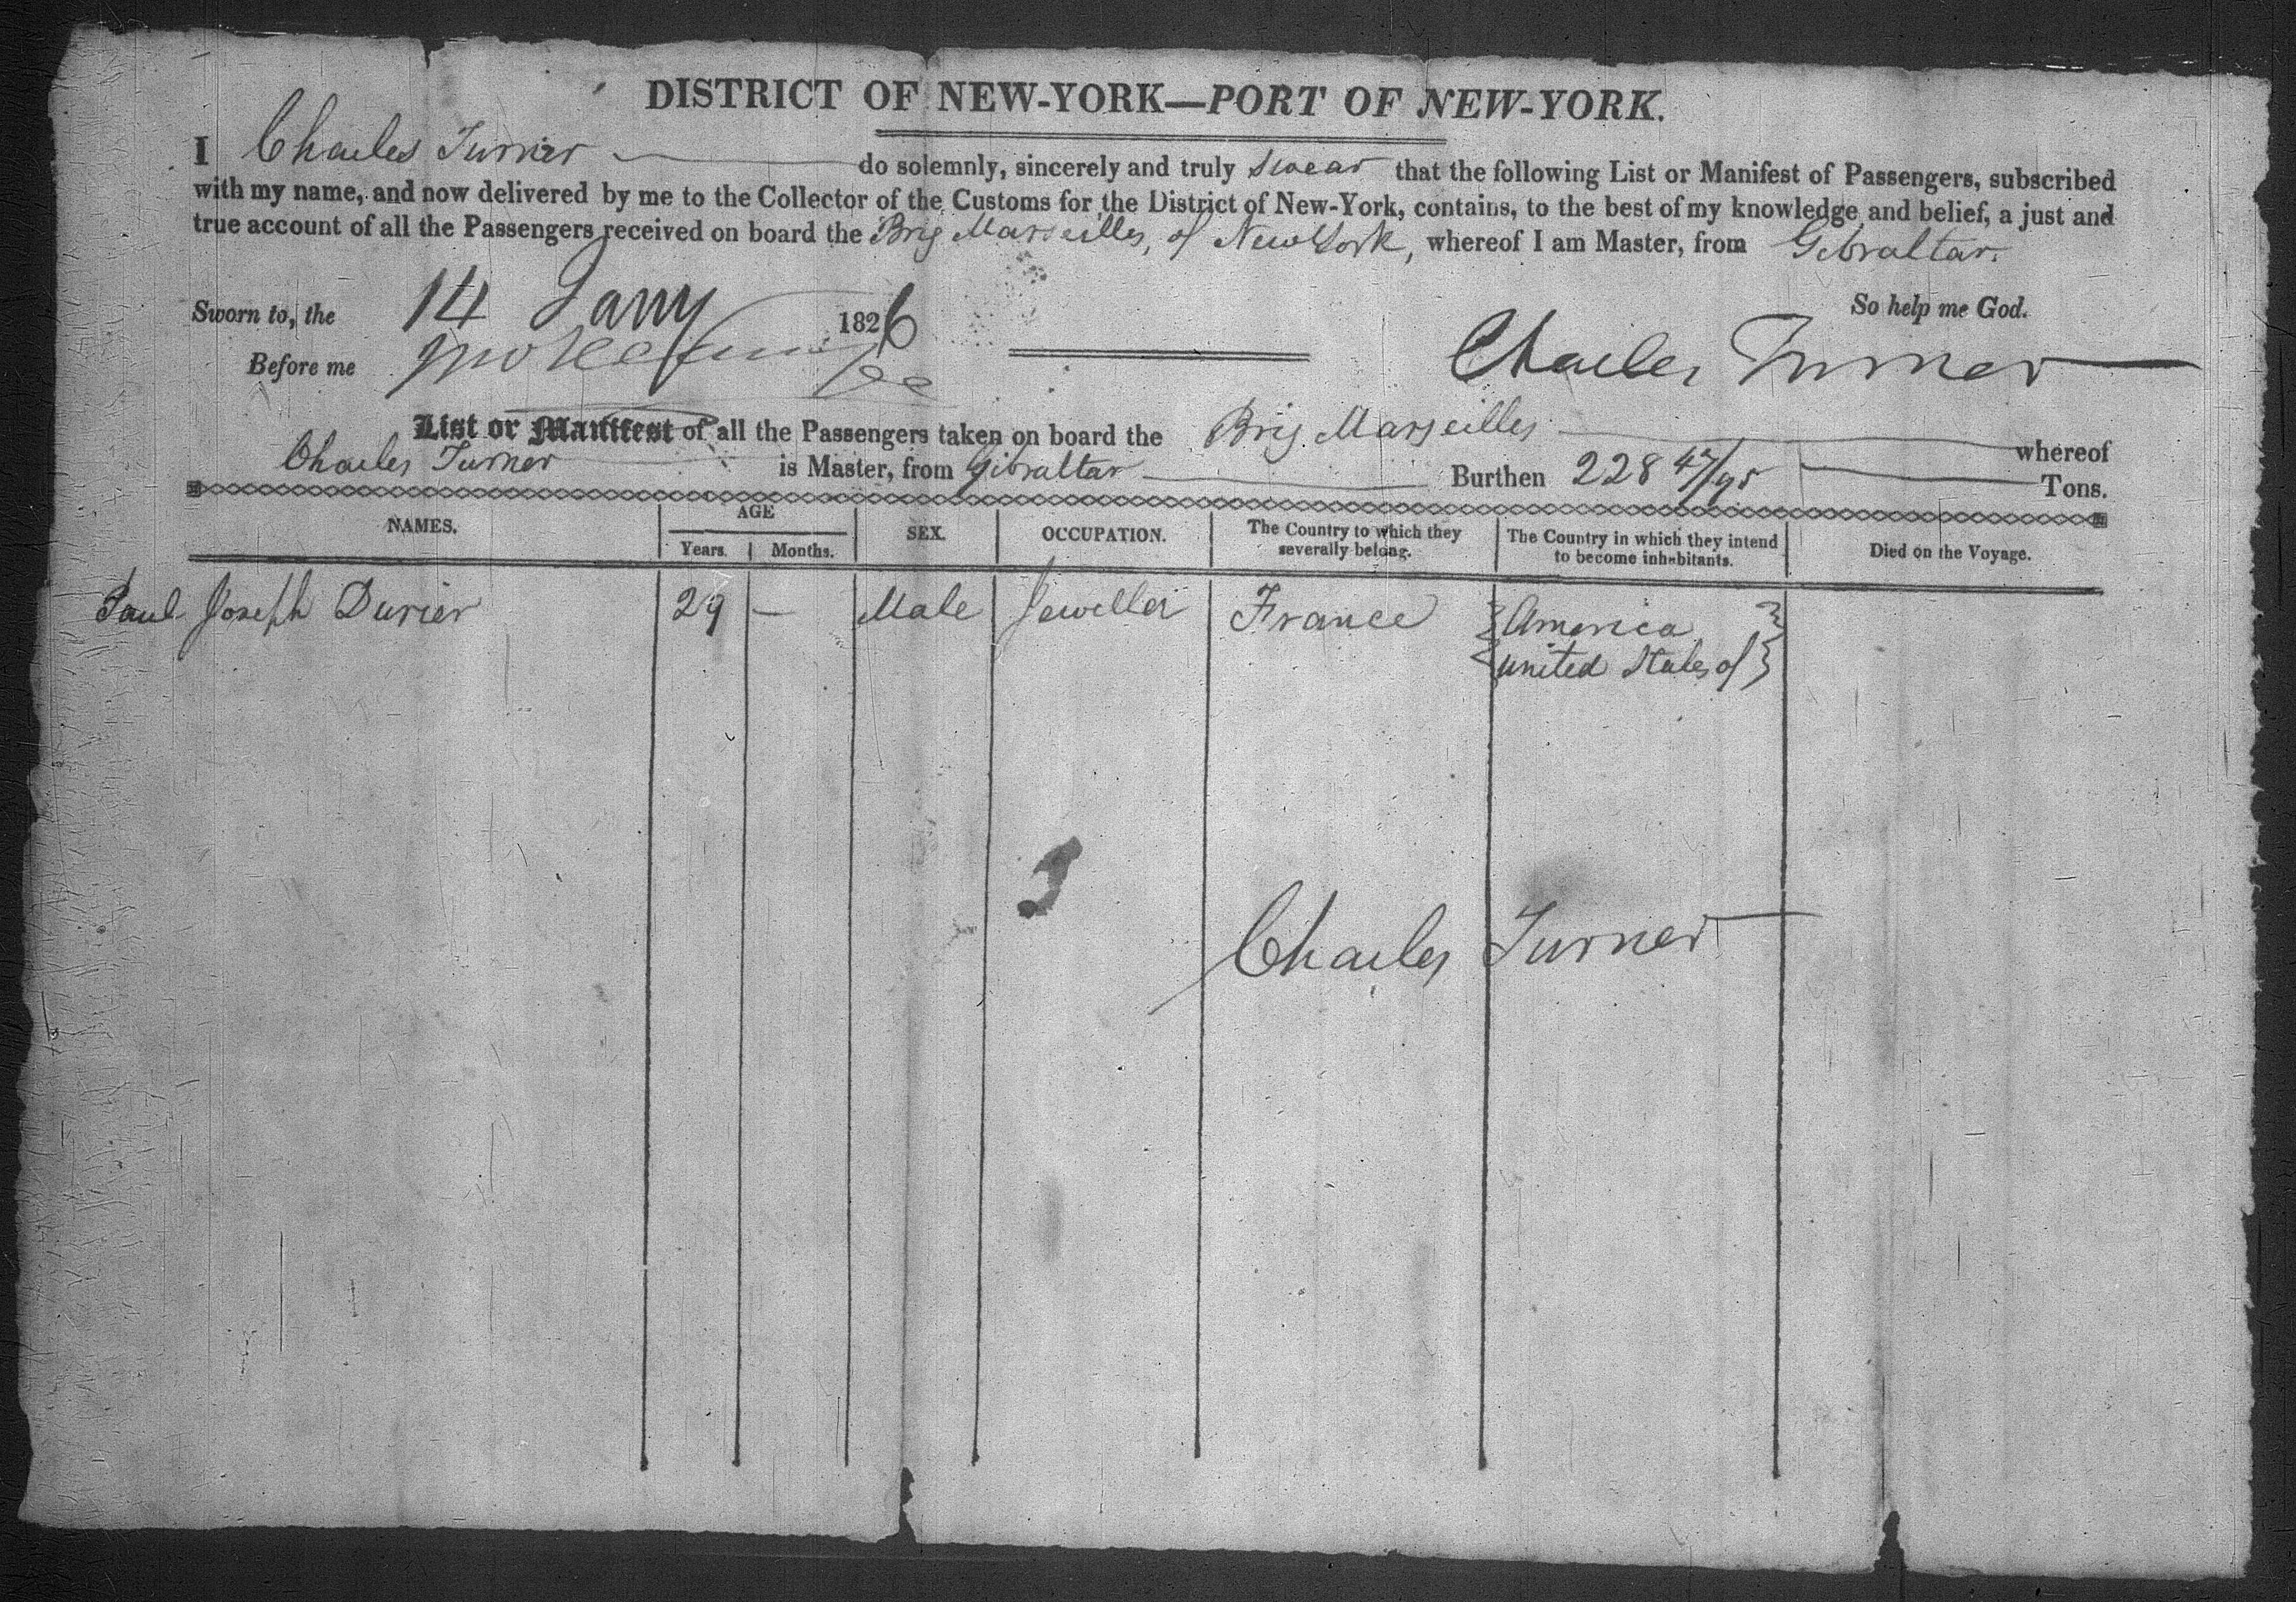 DISTRICT OF NEW-YORK—PORT OF NEW-YORK.
I Charles Turner do solemnly, sincerely and truly swear that the following List or Manifest of Passengers, subscribed
with my name, and now delivered by me to the Collector of the Customs for the District of New-York, contains, to the best of my knowledge and belief, a just and
true account of all the Passengers received on board the Brig Marseilles, of New York, whereof I am Master, from Gibraltar.
So help me God.
Sworn to, the 14 Jany 1826
Before me
Charles Turner
List or Manifest of all the Passengers taken on board the Brig Marseilles whereof
Charles Turner is Master, from Gibraltar Burthen 228 47/95 Tons.
NAMES. AGE SEX. OCCUPATION. The Country to which they severally belong. The Country in which they intend to become inhabitants. Died on the Voyage.
Years. Months.
Paul Joseph Durier 29 — Male Jeweller France America
united States of
Charles Turner